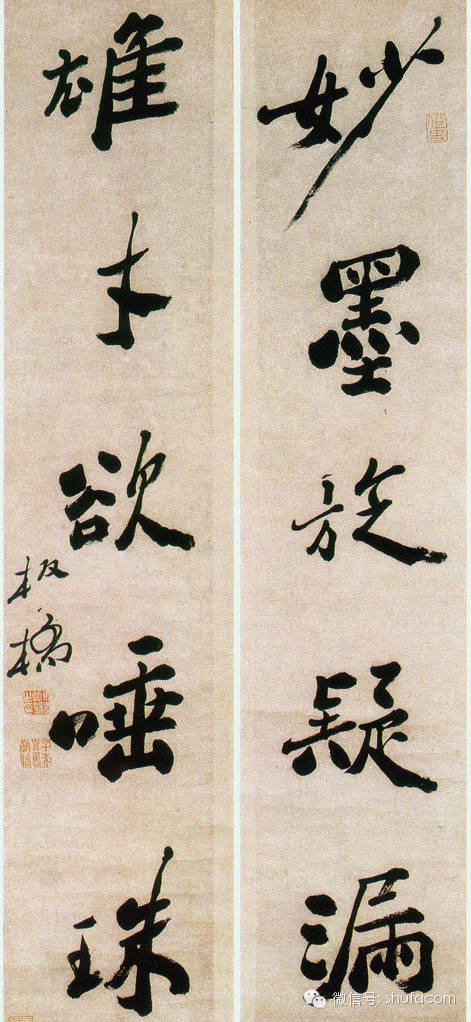 妙墨旋疑漏
雄才欲唾珠
板橋
微信号: shufacom